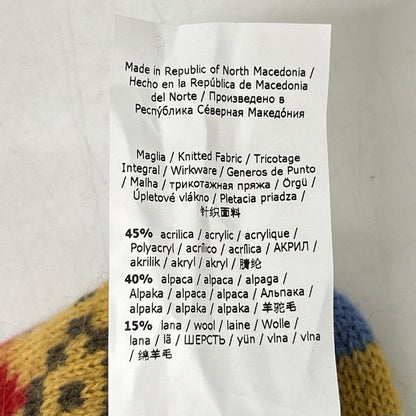 Made in Republic of North Macedonia /
Hecho en la República de Macedonia
del Norte / Произведено в
Респу́блика Се́верная Македо́ния
Maglia / Knitted Fabric / Tricotage
Integral / Wirkware / Generos de Punto
/ Malha / трикотажная пряжа / Örgü /
Úpletové vlákno / Pletacia priadza /
针织面料
45% acrilica / acrylic / acrylique /
Polyacryl / acrílico / acrílica / АКРИЛ /
akrilik / akryl / akryl / 腈纶
40% alpaca / alpaca / alpaga /
Alpaka / alpaca / alpaca / Альпака /
alpaka / alpaka / alpaka / 羊驼毛
15% lana / wool / laine / Wolle /
lana / lã / ШЕРСТЬ / yün / vlna / vlna
/ 绵羊毛